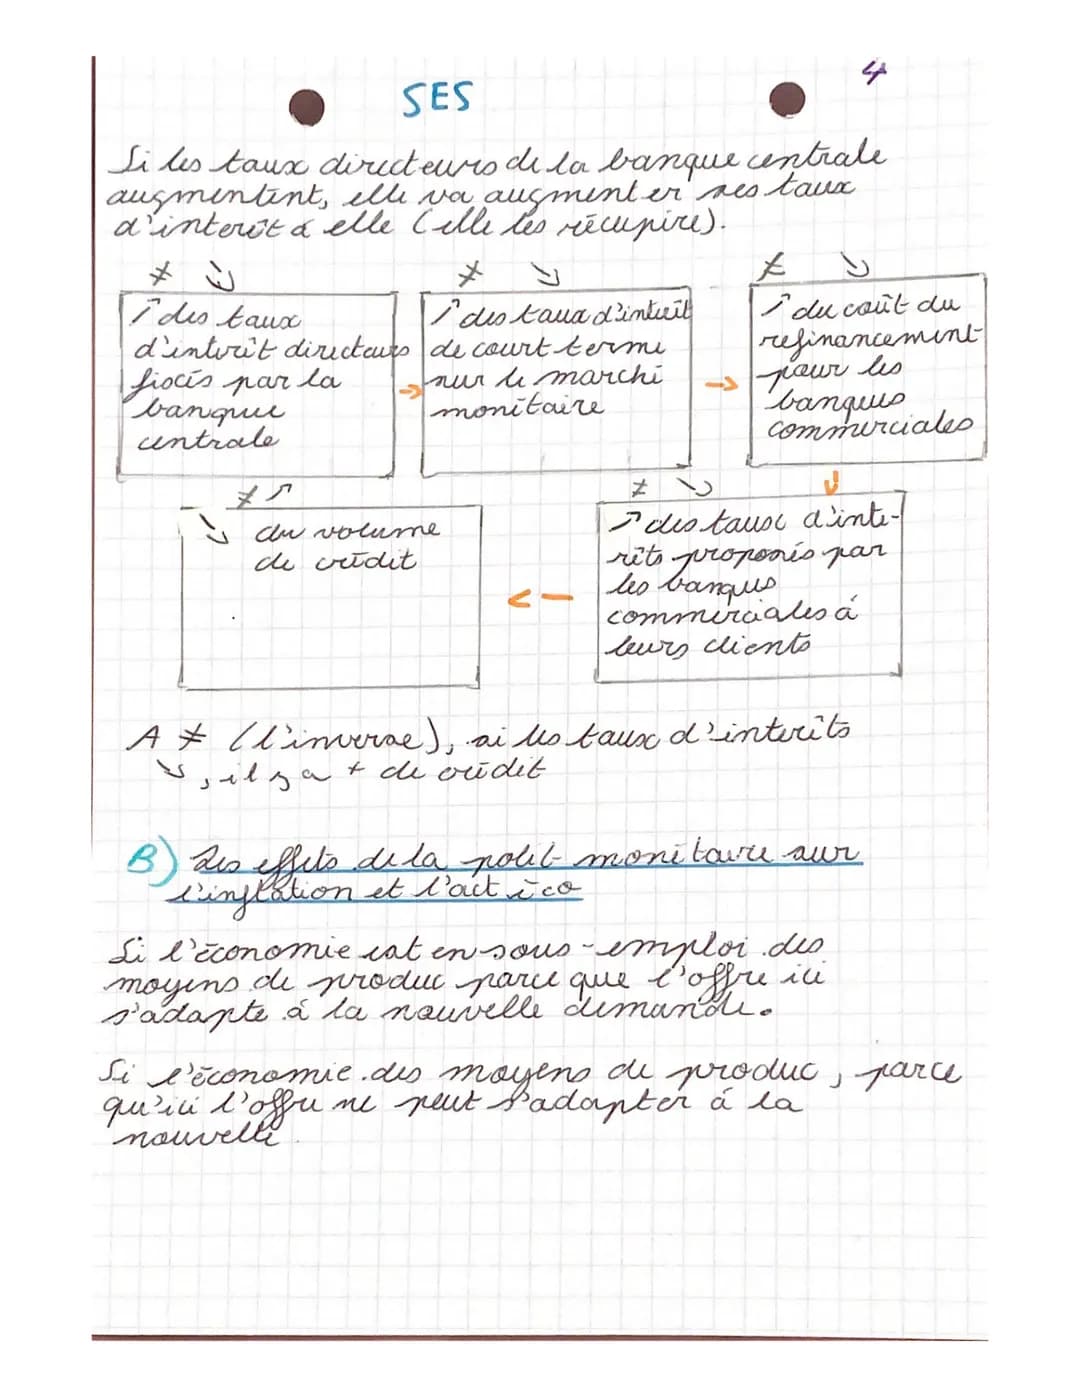 SES
4
Si les taux directeurs de la banque centrale
augmentent, elle va augmenter ses taux
d'interêt à elle (elle les récupère).
≠ ↘
↗ des taux
d'intérêt directeurs
fixés par la
banque
centrale
→
≠ ↘
↗ des taux d'intérêt
de court terme
sur le marché
monétaire
→
≠ ↘
↗ du coût du
refinancement
pour les
banques
commerciales
↓
≠ ↘
↗ des taux d'inté-
rêts proposés par
les banques
commerciales à
leurs clients
<-
≠ ↗
↘ du volume
de crédit
A ≠ (l'inverse), si les taux d'interêts
↘, il y a + de crédit
B) Les effets de la polit monétaire sur
l'inflation et l'act éco
Si l'économie est en sous-emploi des
moyens de produc parce que l'offre ici
s'adapte à la nouvelle demande.
Si l'économie des moyens de produc, parce
qu'ici l'offre ne peut s'adapter à la
nouvelle